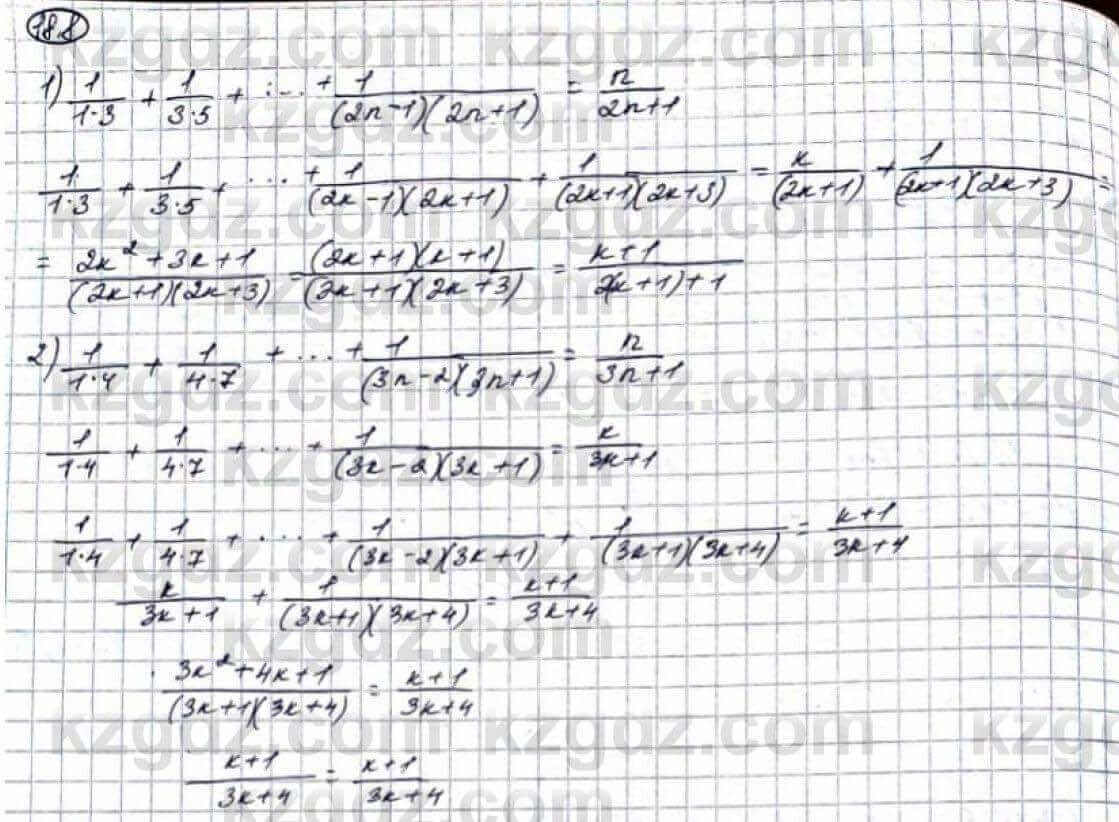 18.8
1) 1/(1·3) + 1/(3·5) + ... + 1/((2n-1)(2n+1)) = n/(2n+1)
1/(1·3) + 1/(3·5) + ... + 1/((2k-1)(2k+1)) + 1/((2k+1)(2k+3)) = k/((2k+1)) + 1/((2k+1)(2k+3)) =
= (2k²+3k+1)/((2k+1)(2k+3)) = ((2k+1)(k+1))/((2k+1)(2k+3)) = (k+1)/(2(k+1)+1)
2) 1/(1·4) + 1/(4·7) + ... + 1/((3n-2)(3n+1)) = n/(3n+1)
1/(1·4) + 1/(4·7) + ... + 1/((3k-2)(3k+1)) = k/(3k+1)
1/(1·4) + 1/(4·7) + ... + 1/((3k-2)(3k+1)) + 1/((3k+1)(3k+4)) = (k+1)/(3k+4)
k/(3k+1) + 1/((3k+1)(3k+4)) = (k+1)/(3k+4)
(3k²+4k+1)/((3k+1)(3k+4)) = (k+1)/(3k+4)
(k+1)/(3k+4) = (k+1)/(3k+4)
kzgdz.com